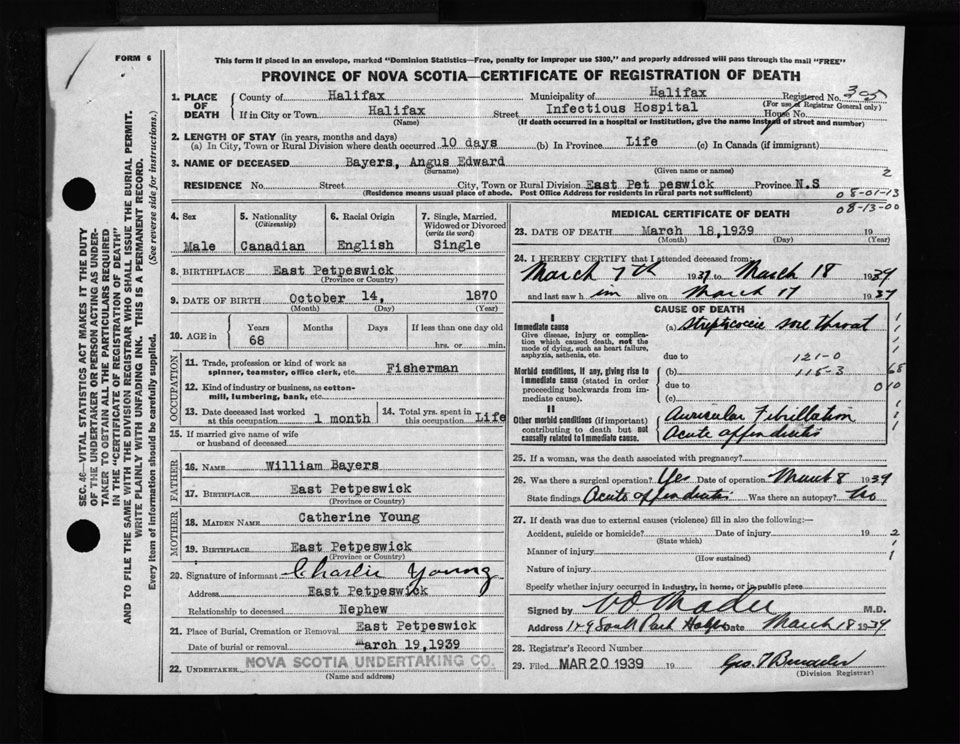 FORM 6
This form if placed in an envelope, marked "Dominion Statistics—Free, penalty for improper use $300," and properly addressed will pass through the mail "FREE"
PROVINCE OF NOVA SCOTIA—CERTIFICATE OF REGISTRATION OF DEATH
SEC. 46—VITAL STATISTICS ACT MAKES IT THE DUTY
OF THE UNDERTAKER OR PERSON ACTING AS UNDER-
TAKER TO OBTAIN ALL THE PARTICULARS REQUIRED
IN THE "CERTIFICATE OF REGISTRATION OF DEATH"
AND TO FILE THE SAME WITH THE DIVISION REGISTRAR WHO SHALL ISSUE THE BURIAL PERMIT.
WRITE PLAINLY WITH UNFADING INK. THIS IS A PERMANENT RECORD.
Every item of information should be carefully supplied. (See reverse side for instructions.)
1. PLACE OF DEATH County of Halifax Municipality of Halifax Registered No. 395
(For use of Registrar General only)
If in City or Town Halifax Street Infectious Hospital House No.
(Name) (If death occurred in a hospital or institution, give the name instead of street and number)
2. LENGTH OF STAY (in years, months and days)
(a) In City, Town or Rural Division where death occurred 10 days (b) In Province Life (c) In Canada (if immigrant)
3. NAME OF DECEASED Bayers, Angus Edward
(Surname) (Given name or names)
2
RESIDENCE No. Street City, Town or Rural Division East Pet peswick Province N.S
(Residence means usual place of abode. Post Office Address for residents in rural parts not sufficient)
08-01-13
08-13-00
4. Sex Male
5. Nationality (Citizenship) Canadian
6. Racial Origin English
7. Single, Married, Widowed or Divorced (write the word) Single
8. BIRTHPLACE East Petpeswick
(Province or Country)
9. DATE OF BIRTH October 14, 1870
(Month) (Day) (Year)
10. AGE in Years Months Days If less than one day old
68 hrs. or min.
OCCUPATION
11. Trade, profession or kind of work as
spinner, teamster, office clerk, etc. Fisherman
12. Kind of industry or business, as cotton-
mill, lumbering, bank, etc.
13. Date deceased last worked
at this occupation 1 month
14. Total yrs. spent in
this occupation Life
15. If married give name of wife
or husband of deceased
FATHER
16. NAME William Bayers
17. BIRTHPLACE East Petpeswick
(Province or Country)
MOTHER
18. MAIDEN NAME Catherine Young
19. BIRTHPLACE East Petpeswick
(Province or Country)
20. Signature of informant Charlie Young
Address East Petpeswick
Relationship to deceased Nephew
21. Place of Burial, Cremation or Removal East Petpeswick
Date of burial or removal March 19,1939
22. UNDERTAKER NOVA SCOTIA UNDERTAKING CO.
(Name and address)
MEDICAL CERTIFICATE OF DEATH
23. DATE OF DEATH March 18,1939 19
(Month) (Day) (Year)
24. I HEREBY CERTIFY that I attended deceased from:
March 7th 1939 to March 18 1939
and last saw him alive on March 17 1939
CAUSE OF DEATH
I
Immediate cause
Give disease, injury or complica-
tion which caused death, not the
mode of dying, such as heart failure,
asphyxia, asthenia, etc.
(a) Streptococcic sore throat
due to 121-0
Morbid conditions, if any, giving rise to
immediate cause (stated in order
proceeding backwards from im-
mediate cause).
(b) 115-3 68
due to 010
(c)
II
Other morbid conditions (if important)
contributing to death but not
causally related to immediate cause.
Auricular Fibrillation
Acute appendicitis
25. If a woman, was the death associated with pregnancy?
26. Was there a surgical operation? Yes Date of operation March 8 1939
State findings Acute appendicitis Was there an autopsy? no
27. If death was due to external causes (violence) fill in also the following:—
Accident, suicide or homicide? Date of injury 19 2
(State which)
Manner of injury 1
(How sustained)
Nature of injury 1
Specify whether injury occurred in industry, in home, or in public place
Signed by M.D.
Address 149 South Park Halifx Date March 18 1939
28. Registrar's Record Number
29. Filed MAR 20 1939 19
(Division Registrar)